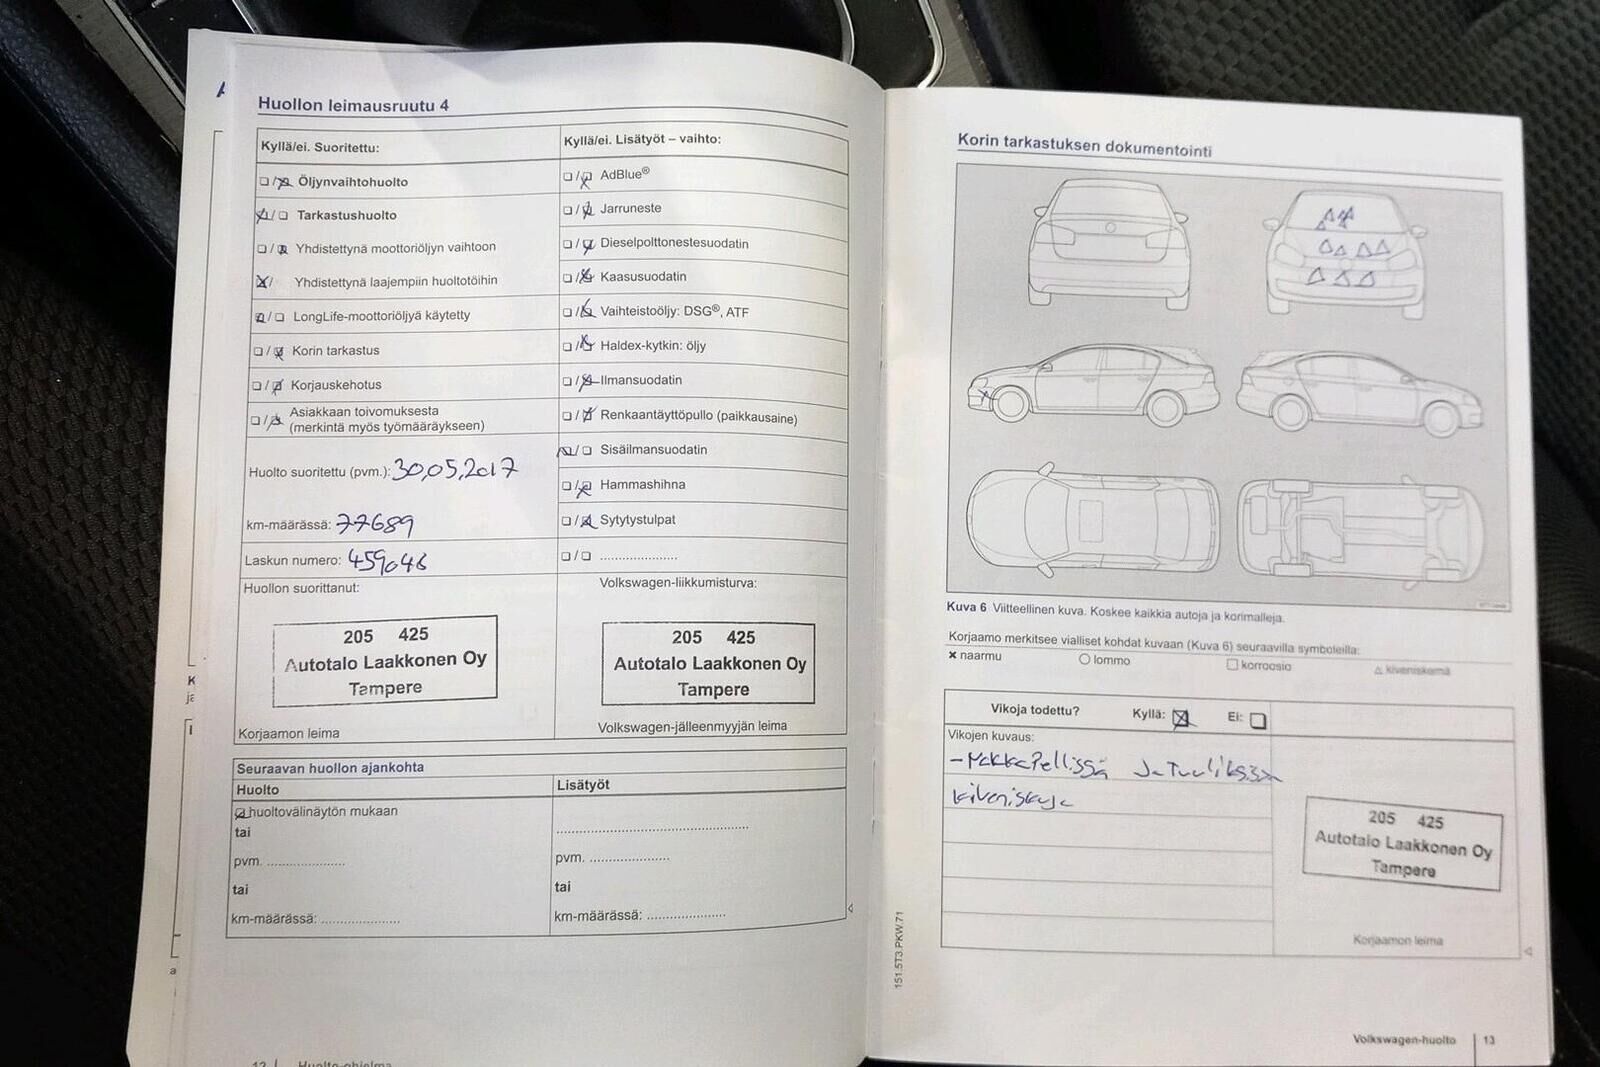 Huollon leimausruutu 4
Kyllä/ei. Suoritettu:
Öljynvaihtohuolto
Tarkastushuolto
Yhdistettynä moottoriöljyn vaihtoon
Yhdistettynä laajempiin huoltotöihin
LongLife-moottoriöljyä käytetty
Korin tarkastus
Korjauskehotus
Asiakkaan toivomuksesta
(merkintä myös työmääräykseen)
Huolto suoritettu (pvm.): 30,05,2017
km-määrässä: 77689
Laskun numero: 459046
Kyllä/ei. Lisätyöt – vaihto:
AdBlue®
Jarruneste
Dieselpolttonestesuodatin
Kaasusuodatin
Vaihteistoöljy: DSG®, ATF
Haldex-kytkin: öljy
Ilmansuodatin
Renkaantäyttöpullo (paikkausaine)
Sisäilmansuodatin
Hammashihna
Sytytystulpat
Huollon suorittanut:
205 425
Autotalo Laakkonen Oy
Tampere
Korjaamon leima
Volkswagen-liikkumisturva:
205 425
Autotalo Laakkonen Oy
Tampere
Volkswagen-jälleenmyyjän leima
Seuraavan huollon ajankohta
Huolto
huoltovälinäytön mukaan
tai
pvm. ....................
tai
km-määrässä: ....................
Lisätyöt
pvm. ....................
tai
km-määrässä: ....................
12 | Huolto-ohjelma
Korin tarkastuksen dokumentointi
Kuva 6 Viitteellinen kuva. Koskee kaikkia autoja ja korimalleja.
Korjaamo merkitsee vialliset kohdat kuvaan (Kuva 6) seuraavilla symboleilla:
naarmu lommo korroosio kiveniskemä
Vikoja todettu? Kyllä: Ei:
Vikojen kuvaus:
- Makkapellissä Ja tuulilasissa
kiveniskuja
205 425
Autotalo Laakkonen Oy
Tampere
Korjaamon leima
151.5T3.PKW.71
Volkswagen-huolto | 13